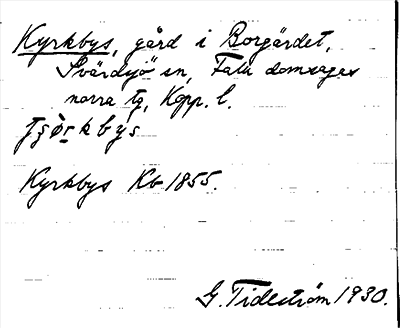 Kyrkbys, gård i Borgärdet,
Svärdsjö sn, Falu domsagas
norra tg, Kopp. l.
Kyrkbys Kb 1855.
G. Tidström 1930.